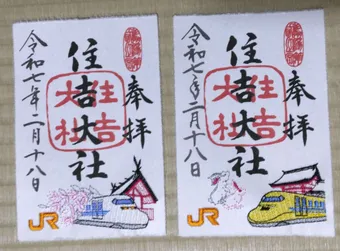 奉拝
住吉大社
住吉
大社
令和七年二月十八日
JR
奉拝
住吉大社
住吉
大社
令和七年二月十八日
JR